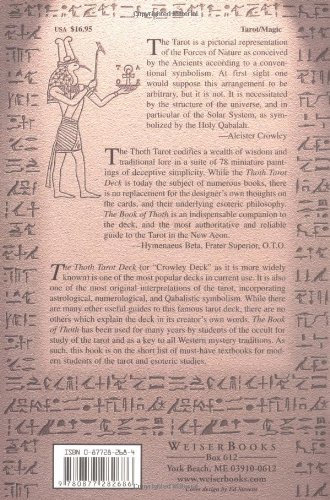 USA $16.95
Tarot/Magic
The Tarot is a pictorial representation
of the Forces of Nature as conceived
by the Ancients according to a conven-
tional symbolism. At first sight one
would suppose this arrangement to be
arbitrary, but it is not. It is necessitated
by the structure of the universe, and in
particular of the Solar System, as sym-
bolized by the Holy Qabalah.
—Aleister Crowley
The Thoth Tarot codifies a wealth of wisdom and
traditional lore in a suite of 78 miniature paint-
ings of deceptive simplicity. While the Thoth Tarot
Deck is today the subject of numerous books, there
is no replacement for the designer's own thoughts on
the cards, and their underlying esoteric philosophy.
The Book of Thoth is an indispensable companion to
the deck, and the most authoritative and reliable
guide to the Tarot in the New Aeon.
—Hymenaeus Beta, Frater Superior, O.T.O.
The Thoth Tarot Deck (or "Crowley Deck" as it is more widely
known) is one of the most popular decks in current use. It is also
one of the most original interpretations of the tarot, incorporating
astrological, numerological, and Qabalistic symbolism. While there
are many other useful guides to this famous tarot deck, there are no
others which explain the deck in its creator's own words. The Book
of Thoth has been used for many years by students of the occult for
study of the tarot and as a key to all Western mystery traditions. As
such, this book is on the short list of must-have textbooks for mod-
ern students of the tarot and esoteric studies.
ISBN 0-87728-268-4
9 780877 282686
WEISERBOOKS
Box 612
York Beach, ME 03910-0612
www.weiserbooks.com
Cover design by Ed Stevens